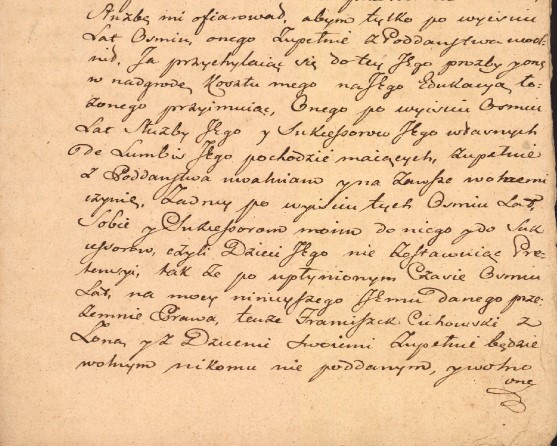 Służbę mi ofiarował, abym tylko po wyiściu
Lat Osmiu, onego Zupełnie z Poddaństwa uwol
nił, Ja przychylaiąc się do tey Jego prozby y onę
w nadgrodę Kosztu mego na Jego Edukacyą ło-
żonego przyimuiąc, Onego po wyiściu Osmiu
Lat Służby Jego y Sukcessorow Jego własnych
de Lumbis Jego pochodzić maiących, zupełnie
z Poddaństwa uwalniam y na zawsze wolnemi
czynię, Żadney po wyiściu tych Osmiu Lat,
Sobie y Sukcessorom moim do niego y do Suk
cessorow, czyli Dzieci Jego nie zostawuiąc Pre-
tensyi, tak że po upłynionym Czasie Osmiu
Lat, na mocy ninieyszego Jemu danego prze-
zemnie Prawa, tenże Franciszek Cichowski z
Żoną y z Dziećmi Swoiemi Zupełnie będzie
wolnym nikomu nie poddanym, y wolno
one